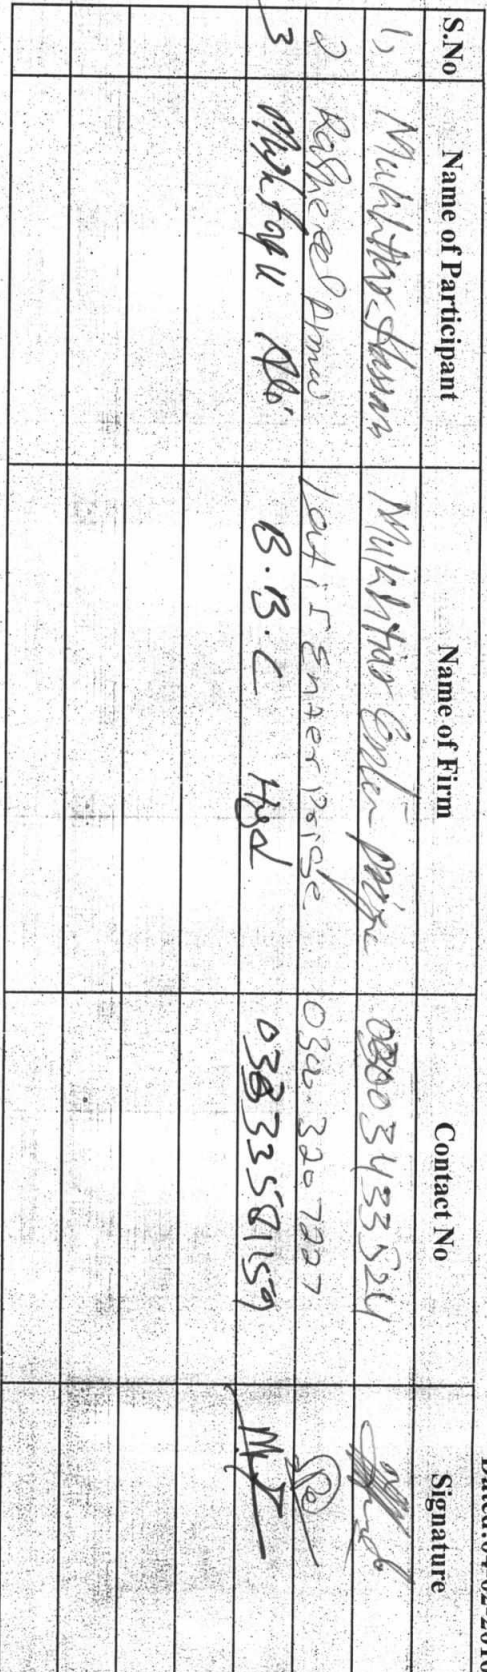 Dated:04-02-2016
S.No Name of Participant Name of Firm Contact No Signature
1) Mukhtiar Hassan Mukhtiar Enterprise 03003433524
2) Rasheed Ahmed Latif Enterprise 0300-3207227
3 Mushtaque Ali B.B.C Hyd 033335581159